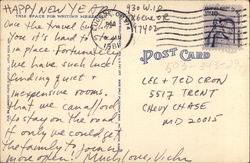 HAPPY NEW YEAR
THIS SPACE FOR WRITING MESSAGE
Once the travel bug
you it's hard to stay
in place. Fortunately
we have such luck
finding quiet &
inexpensive rooms
that we can afford
to stay on the road.
If only we could get
the family to join us
more often! Much love, Vicki
930 W. D
97402
POST CARD
LEE & TED CRON
5517 TRENT
CHEVY CHASE
MD 20015